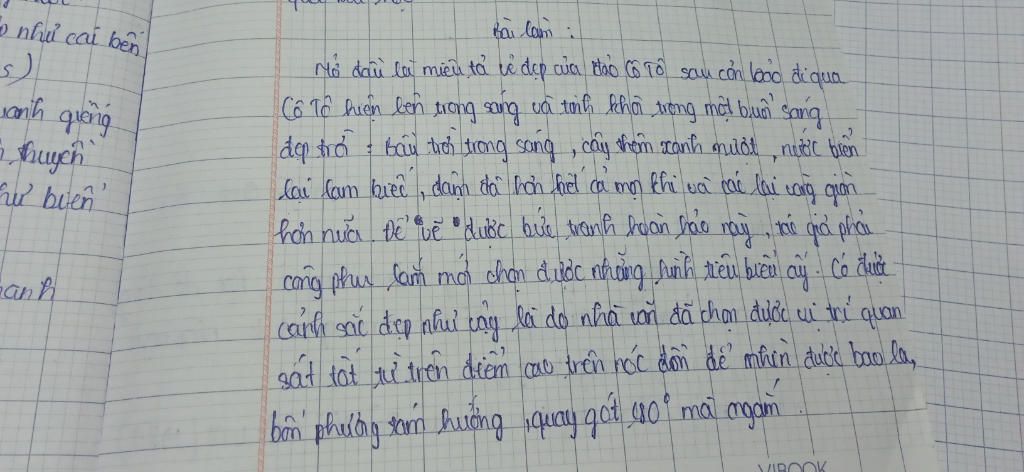 như cái bến
s)
Bài làm :
Mở đầu lại miêu tả vẻ đẹp của Đảo Cô Tô sau cơn bão đi qua
anh giếng
Cô Tô hiện lên trong sáng và tinh khôi trong một buổi sáng
thuyền
đẹp trời : bầu trời trong sáng, cây thêm xanh mượt, nước biển
biển
lại lam biếc, đậm đà hơn hết cả mọi khi và cát lại vàng giòn
hơn nữa. Để "vẽ" được bức tranh hoàn hảo này, tác giả phải
anh
công phu lắm mới chọn được những hình tiêu biểu ấy. Có được
cảnh sắc đẹp như vậy là do nhà văn đã chọn được vị trí quan
sát tốt từ trên điểm cao trên nóc đồn để nhìn được bao la,
bốn phương tám hướng, quay gót 90° mà ngắm.
VIBOOK